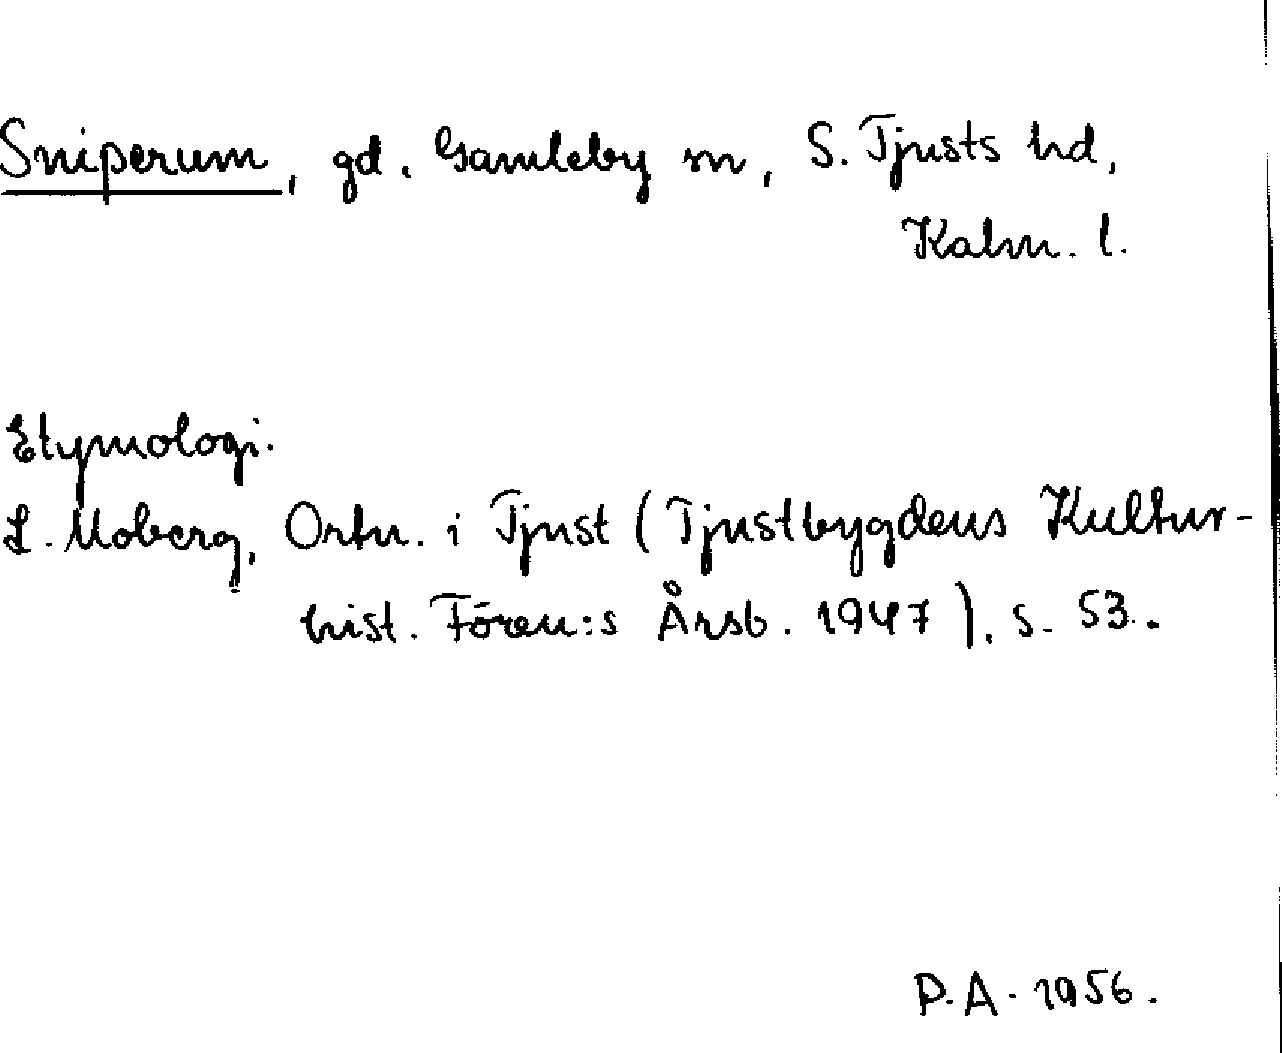 Sniperum, gd. Gamleby sn, S. Tjusts hd,
Kalm. l.
Etymologi.
L. Moberg, Ortn. i Tjust (Tjustbygdens Kultur-
hist. Fören:s Årsb. 1947), s. 53.
P.A. 1956.